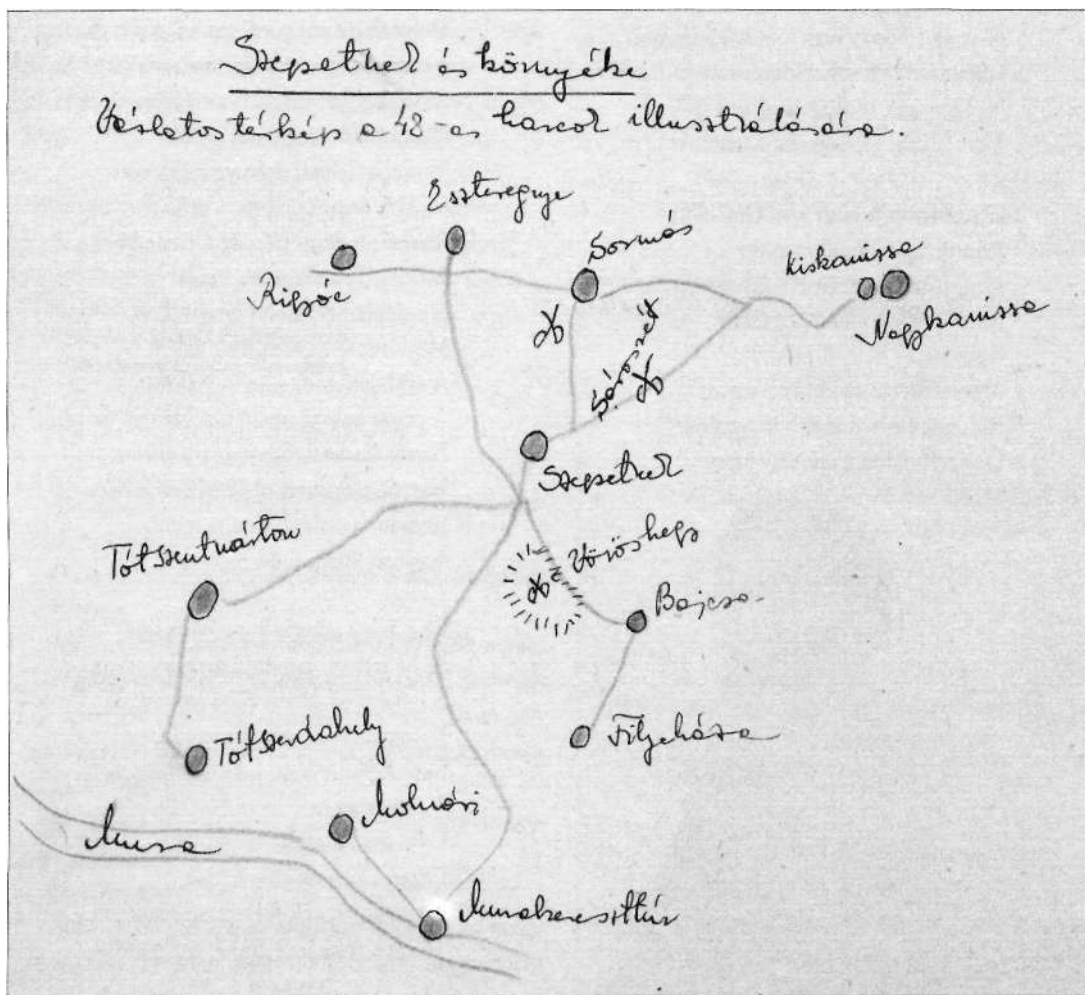 Szepetnek és környéke
Vázlatos térkép a 48-as harcok illusztrálására.
Eszteregnye
Sormás
Kiskanizsa
Rigyác
Nagykanizsa
Sárosrét
Szepetnek
Tótszentmárton
Vöröshegy
Bajcsa
Tótszerdahely
Fityeháza
Molnári
Mura
Murakeresztúr